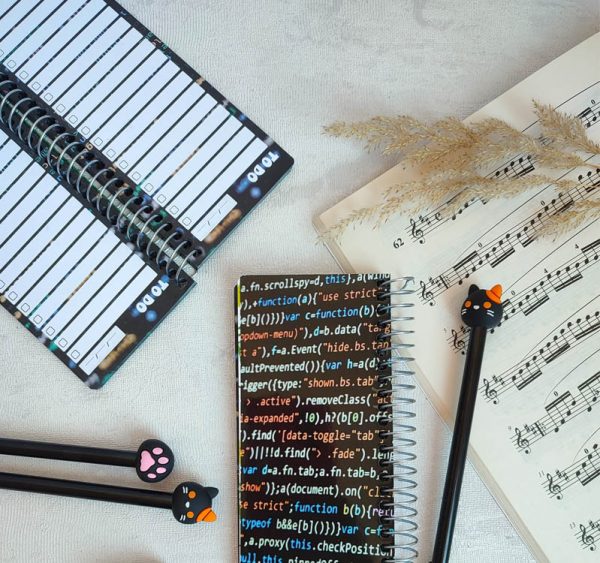 TO DO
TO DO
62
a.fn.scrollspy=d,this},a(wind
),+function(a){"use strict";
e[b]())})}var c=function(b){
opdown-menu)"),d=b.data("ta
t a"),f=a.Event("hide.bs.tab
aultPrevented()){var h=a(d)
rigger({type:"shown.bs.tab"
> .active").removeClass("act
ia-expanded",!0),h?(b[0].offs
).find('[data-toggle="tab"
")||!!d.find("> .fade").leng
var d=a.fn.tab;a.fn.tab=b,
show")};a(document).on("cl
se strict";function b(b){retu
typeof b&&e[b]()})}var c=f
,a.proxy(this.checkPosition
null,this.pinnedOff